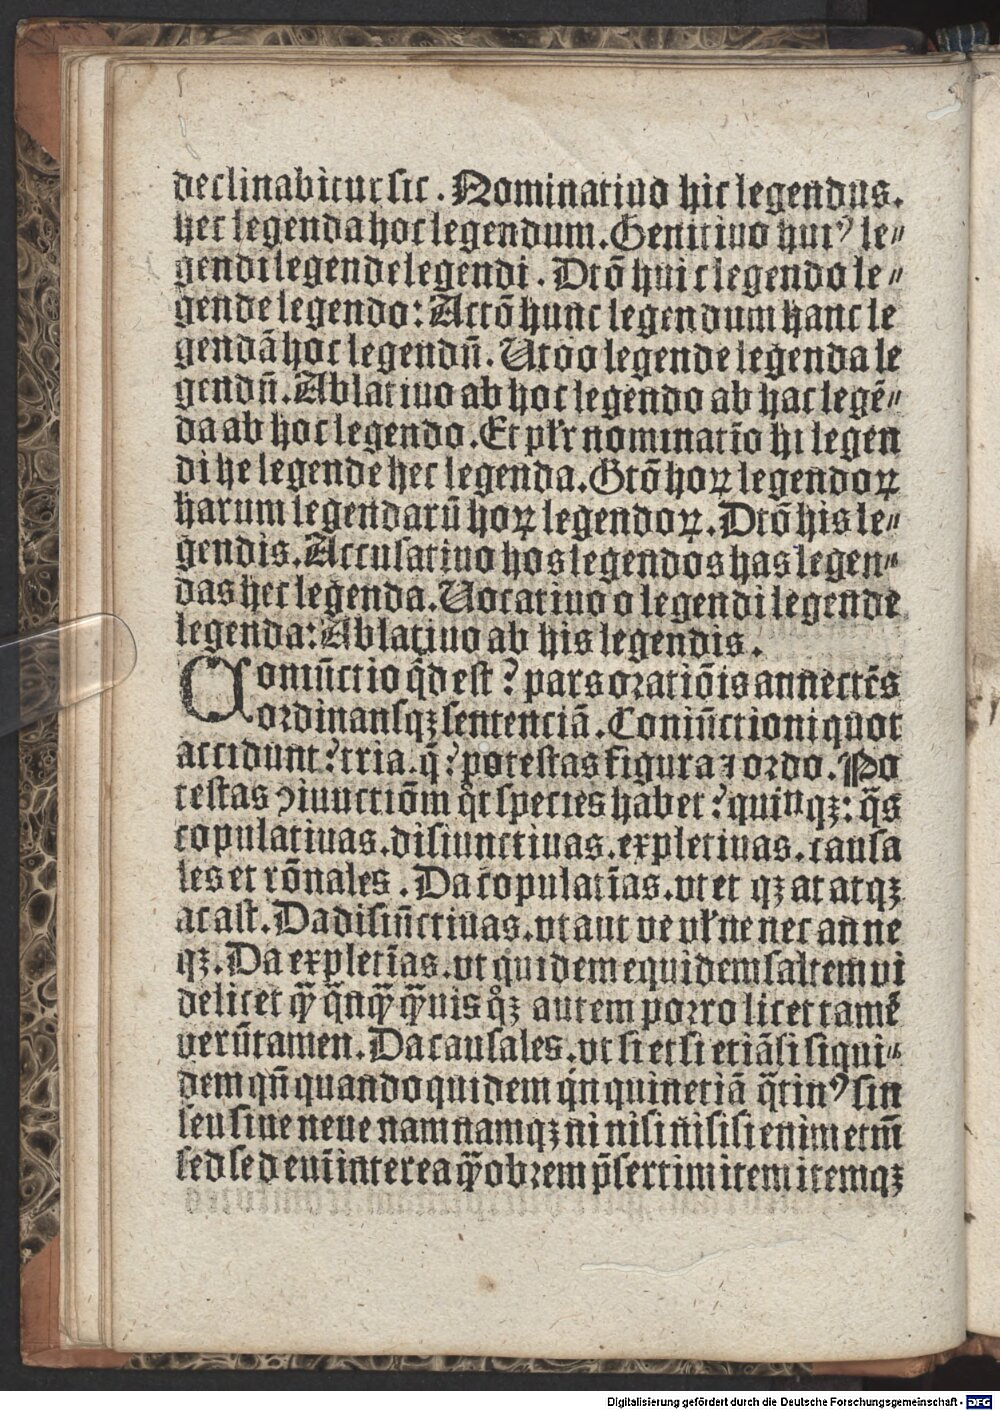 declinabitur sic. Nominatiuo hic legendus.
hec legenda hoc legendum. Genitiuo huiꝰ le⸗
gendi legende legendi. Dtō huic legendo le⸗
gende legendo: Acctō hunc legendum hanc le
gendā hoc legendū. Utō o legende legenda le
gendū. Ablatiuo ab hoc legendo ab hac legē⸗
da ab hoc legendo. Et plr̄ nominatīo hi legen
di he legende hec legenda. Gtō hoꝝ legendoꝝ
harum legendarū hoꝝ legendoꝝ. Dtō his le⸗
gendis. Accusatiuo hos legendos has legen⸗
das hec legenda. Uocatiuo o legendi legende
legenda: Ablatiuo ab his legendis.
Coniūctio qͥd est? pars oratiōis annectēs
ordinansqꝫ sentenciā. Coniūctioni quot
accidunt? tria. q̄? potestas figura ⁊ ordo. Po
testas ꝯiunctiōm qͦt species habet? quinqꝫ: q̄s
copulatiuas. disiunctiuas. expletiuas. causa
les et rōnales. Da copulatīas. vt et qꝫ at atqꝫ
ac ast. Da disiūctiuas. vt aut ve vl̄ ne nec an ne
qꝫ. Da expletīas. vt quidem equidem saltem vi
delicet qͣꝫ qͣꝫuis qͦqꝫ autem porro licet tamē
verūtamen. Da causales. vt si etsi etiāsi siqui⸗
dem qn̄ quandoquidem qͥn quinetiā q̄tinꝰ sin
seu siue neue nam namqꝫ ni nisi nisi si enim etm̄
sed sed eni interea qͣꝫobrem p̄sertim item itemqꝫ
Digitalisierung gefördert durch die Deutsche Forschungsgemeinschaft - DFG